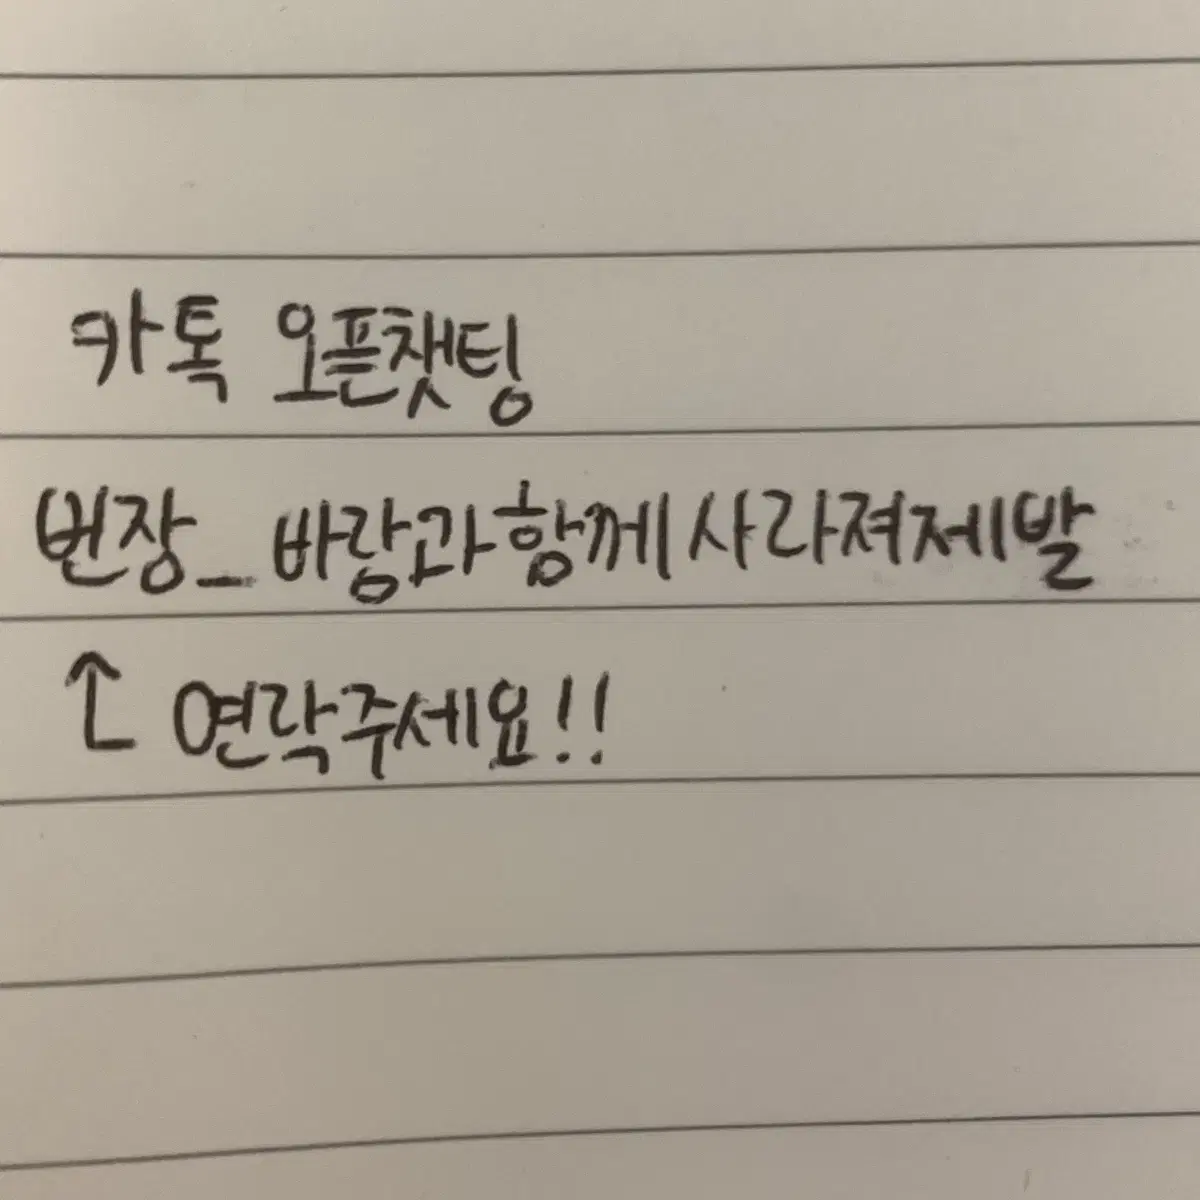 카톡 오픈챗팅
번장_바람과함께사라져제발
↑ 연락주세요!!